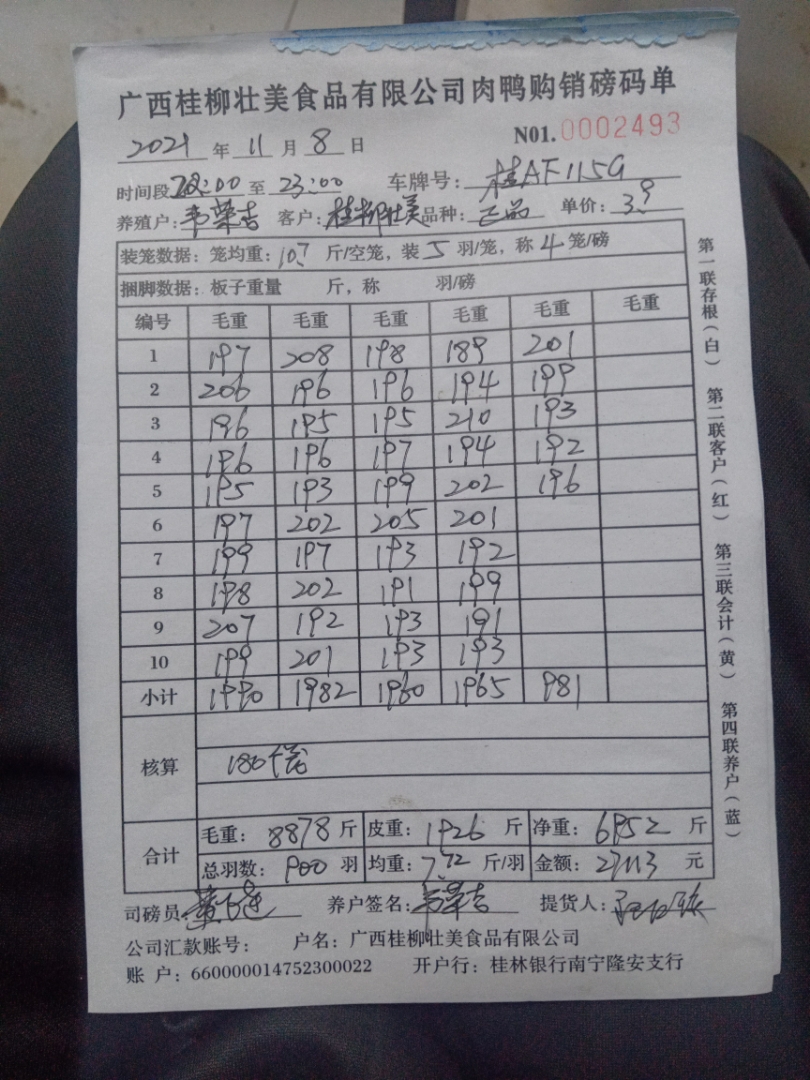 广西桂柳壮美食品有限公司肉鸭购销磅码单
2021 年 11 月 8 日 N01.0002493
时间段 22:00 至 23:00 车牌号: 桂AF115G
养殖户: 韦荣吉 客户: 桂柳壮美 品种: 正品 单价: 3.9
装笼数据: 笼均重: 10.7 斤/空笼, 装 5 羽/笼, 称 4 笼/磅
捆脚数据: 板子重量 斤, 称 羽/磅
编号 毛重 毛重 毛重 毛重 毛重 毛重
1 197 208 198 189 201
2 206 196 196 194 199
3 196 195 195 210 193
4 196 196 197 194 192
5 195 193 199 202 196
6 197 202 205 201
7 199 197 193 192
8 198 202 191 199
9 207 192 193 191
10 199 201 193 193
小计 1990 1982 1960 1965 981
核算 180个笼
合计 毛重: 8878 斤 皮重: 1926 斤 净重: 6952 斤
总羽数: 900 羽 均重: 7.72 斤/羽 金额: 27113 元
司磅员: 养户签名: 韦荣吉 提货人:
公司汇款账号: 户名: 广西桂柳壮美食品有限公司
账 户: 660000014752300022 开户行: 桂林银行南宁隆安支行
第一联存根(白) 第二联客户(红) 第三联会计(黄) 第四联养户(蓝)